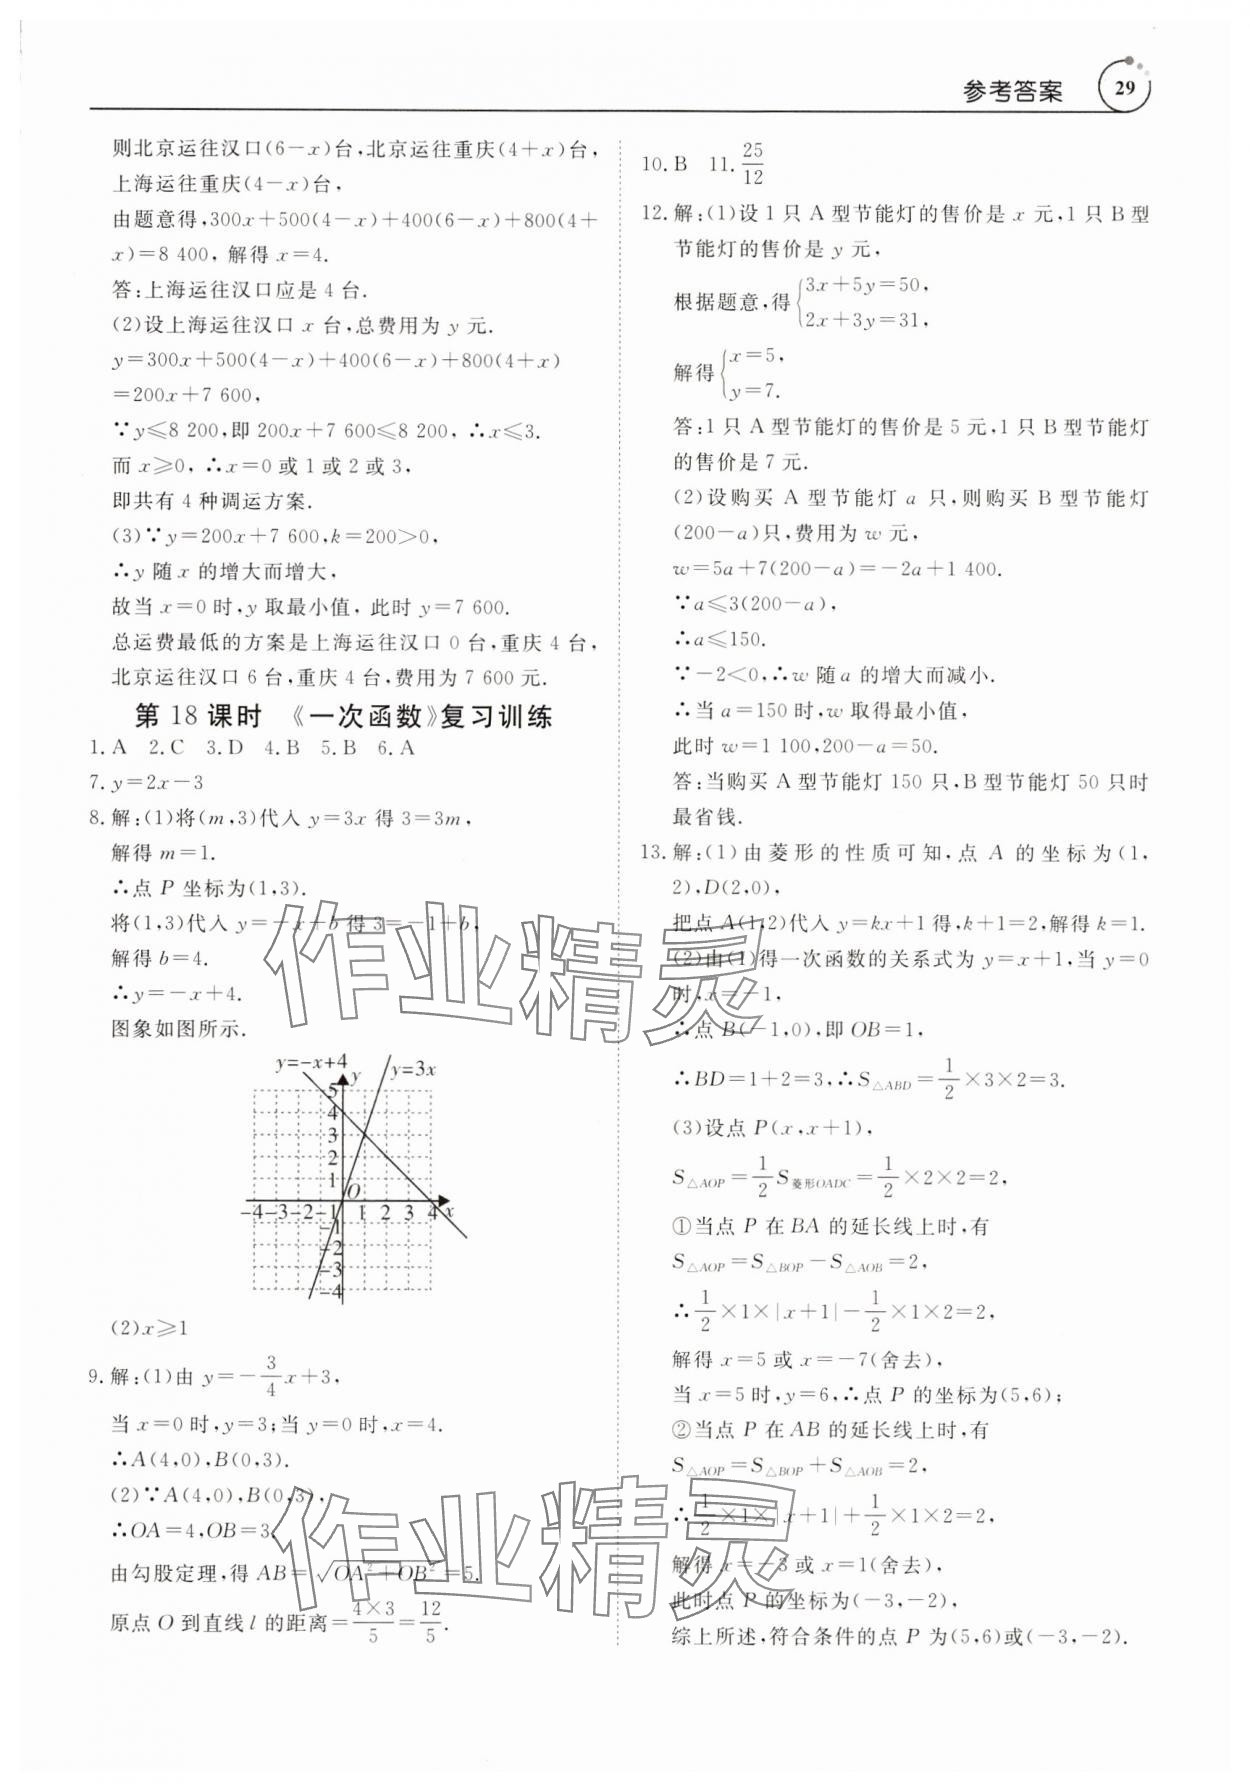 参考答案 29
则北京运往汉口(6-x)台,北京运往重庆(4+x)台,
上海运往重庆(4-x)台,
由题意得,300x+500(4-x)+400(6-x)+800(4+
x)=8 400, 解得 x=4.
答:上海运往汉口应是 4 台.
(2)设上海运往汉口 x 台,总费用为 y 元.
y=300x+500(4-x)+400(6-x)+800(4+x)
=200x+7 600,
∵y≤8 200,即 200x+7 600≤8 200, ∴x≤3.
而 x≥0, ∴x=0 或 1 或 2 或 3,
即共有 4 种调运方案.
(3)∵y=200x+7 600,k=200>0,
∴y 随 x 的增大而增大,
故当 x=0 时,y 取最小值, 此时 y=7 600.
总运费最低的方案是上海运往汉口 0 台,重庆 4 台,
北京运往汉口 6 台,重庆 4 台,费用为 7 600元.
第 18 课时 《一次函数》复习训练
1. A 2. C 3. D 4. B 5. B 6. A
7. y=2x-3
8. 解:(1)将(m,3)代入 y=3x 得 3=3m,
解得 m=1.
∴点 P 坐标为(1,3).
将(1,3)代入 y=-x+b 得 3=-1+b,
解得 b=4.
∴y=-x+4.
图象如图所示.
y=-x+4 y y=3x
5
4
3
2
1
O
-4-3-2-1 1 2 3 4 x
-1
-2
-3
-4
(2)x≥1
9. 解:(1)由 y=-3/4x+3,
当 x=0 时,y=3;当 y=0 时,x=4.
∴A(4,0),B(0,3).
(2)∵A(4,0),B(0,3),
∴OA=4,OB=3,
由勾股定理,得 AB=√(OA²+OB²)=5.
原点 O 到直线 l 的距离=(4×3)/5=12/5.
10. B 11. 25/12
12. 解:(1)设 1 只 A 型节能灯的售价是 x 元,1 只 B 型
节能灯的售价是 y 元,
根据题意,得{3x+5y=50,
2x+3y=31,
解得{x=5,
y=7.
答:1 只 A 型节能灯的售价是 5 元,1 只 B 型节能灯
的售价是 7 元.
(2)设购买 A 型节能灯 a 只,则购买 B 型节能灯
(200-a)只,费用为 w 元,
w=5a+7(200-a)=-2a+1 400.
∵a≤3(200-a),
∴a≤150.
∵-2<0,∴w 随 a 的增大而减小.
∴当 a=150 时,w 取得最小值,
此时 w=1 100,200-a=50.
答:当购买 A 型节能灯 150 只,B 型节能灯 50 只时
最省钱.
13. 解:(1)由菱形的性质可知,点 A 的坐标为(1,
2),D(2,0),
把点 A(1,2)代入 y=kx+1 得,k+1=2,解得 k=1.
(2)由(1)得一次函数的关系式为 y=x+1,当 y=0
时,x=-1,
∴点 B(-1,0),即 OB=1,
∴BD=1+2=3,∴S△ABD=1/2×3×2=3.
(3)设点 P(x,x+1),
S△AOP=1/2S菱形OADC=1/2×2×2=2,
①当点 P 在 BA 的延长线上时,有
S△AOP=S△BOP-S△AOB=2,
∴1/2×1×|x+1|-1/2×1×2=2,
解得 x=5 或 x=-7(舍去),
当 x=5 时,y=6,∴点 P 的坐标为(5,6);
②当点 P 在 AB 的延长线上时,有
S△AOP=S△BOP+S△AOB=2,
∴1/2×1×|x+1|+1/2×1×2=2,
解得 x=-3 或 x=1(舍去),
此时点 P 的坐标为(-3,-2),
综上所述,符合条件的点 P 为(5,6)或(-3,-2).
作业精灵
作业精灵